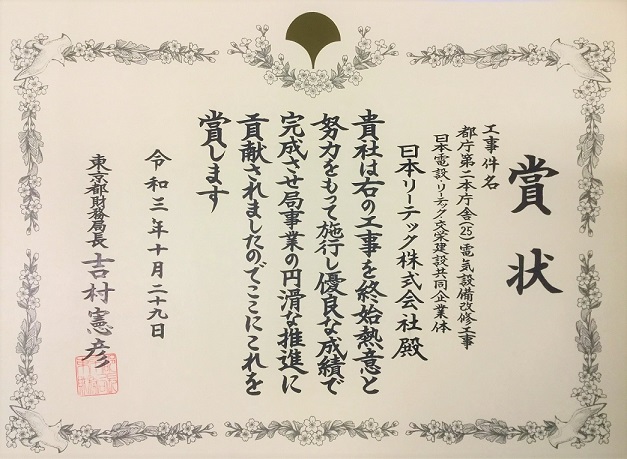 賞状
工事件名
都庁第二本庁舎(25)電気設備改修工事
日本電設・リーテック・交栄建設共同企業体
日本リーテック株式会社殿
貴社は右の工事を終始熱意と
努力をもって施行し優良な成績で
完成させ局事業の円滑な推進に
貢献されましたのでここにこれを
賞します
令和三年十月二十九日
東京都財務局長 吉村憲彦